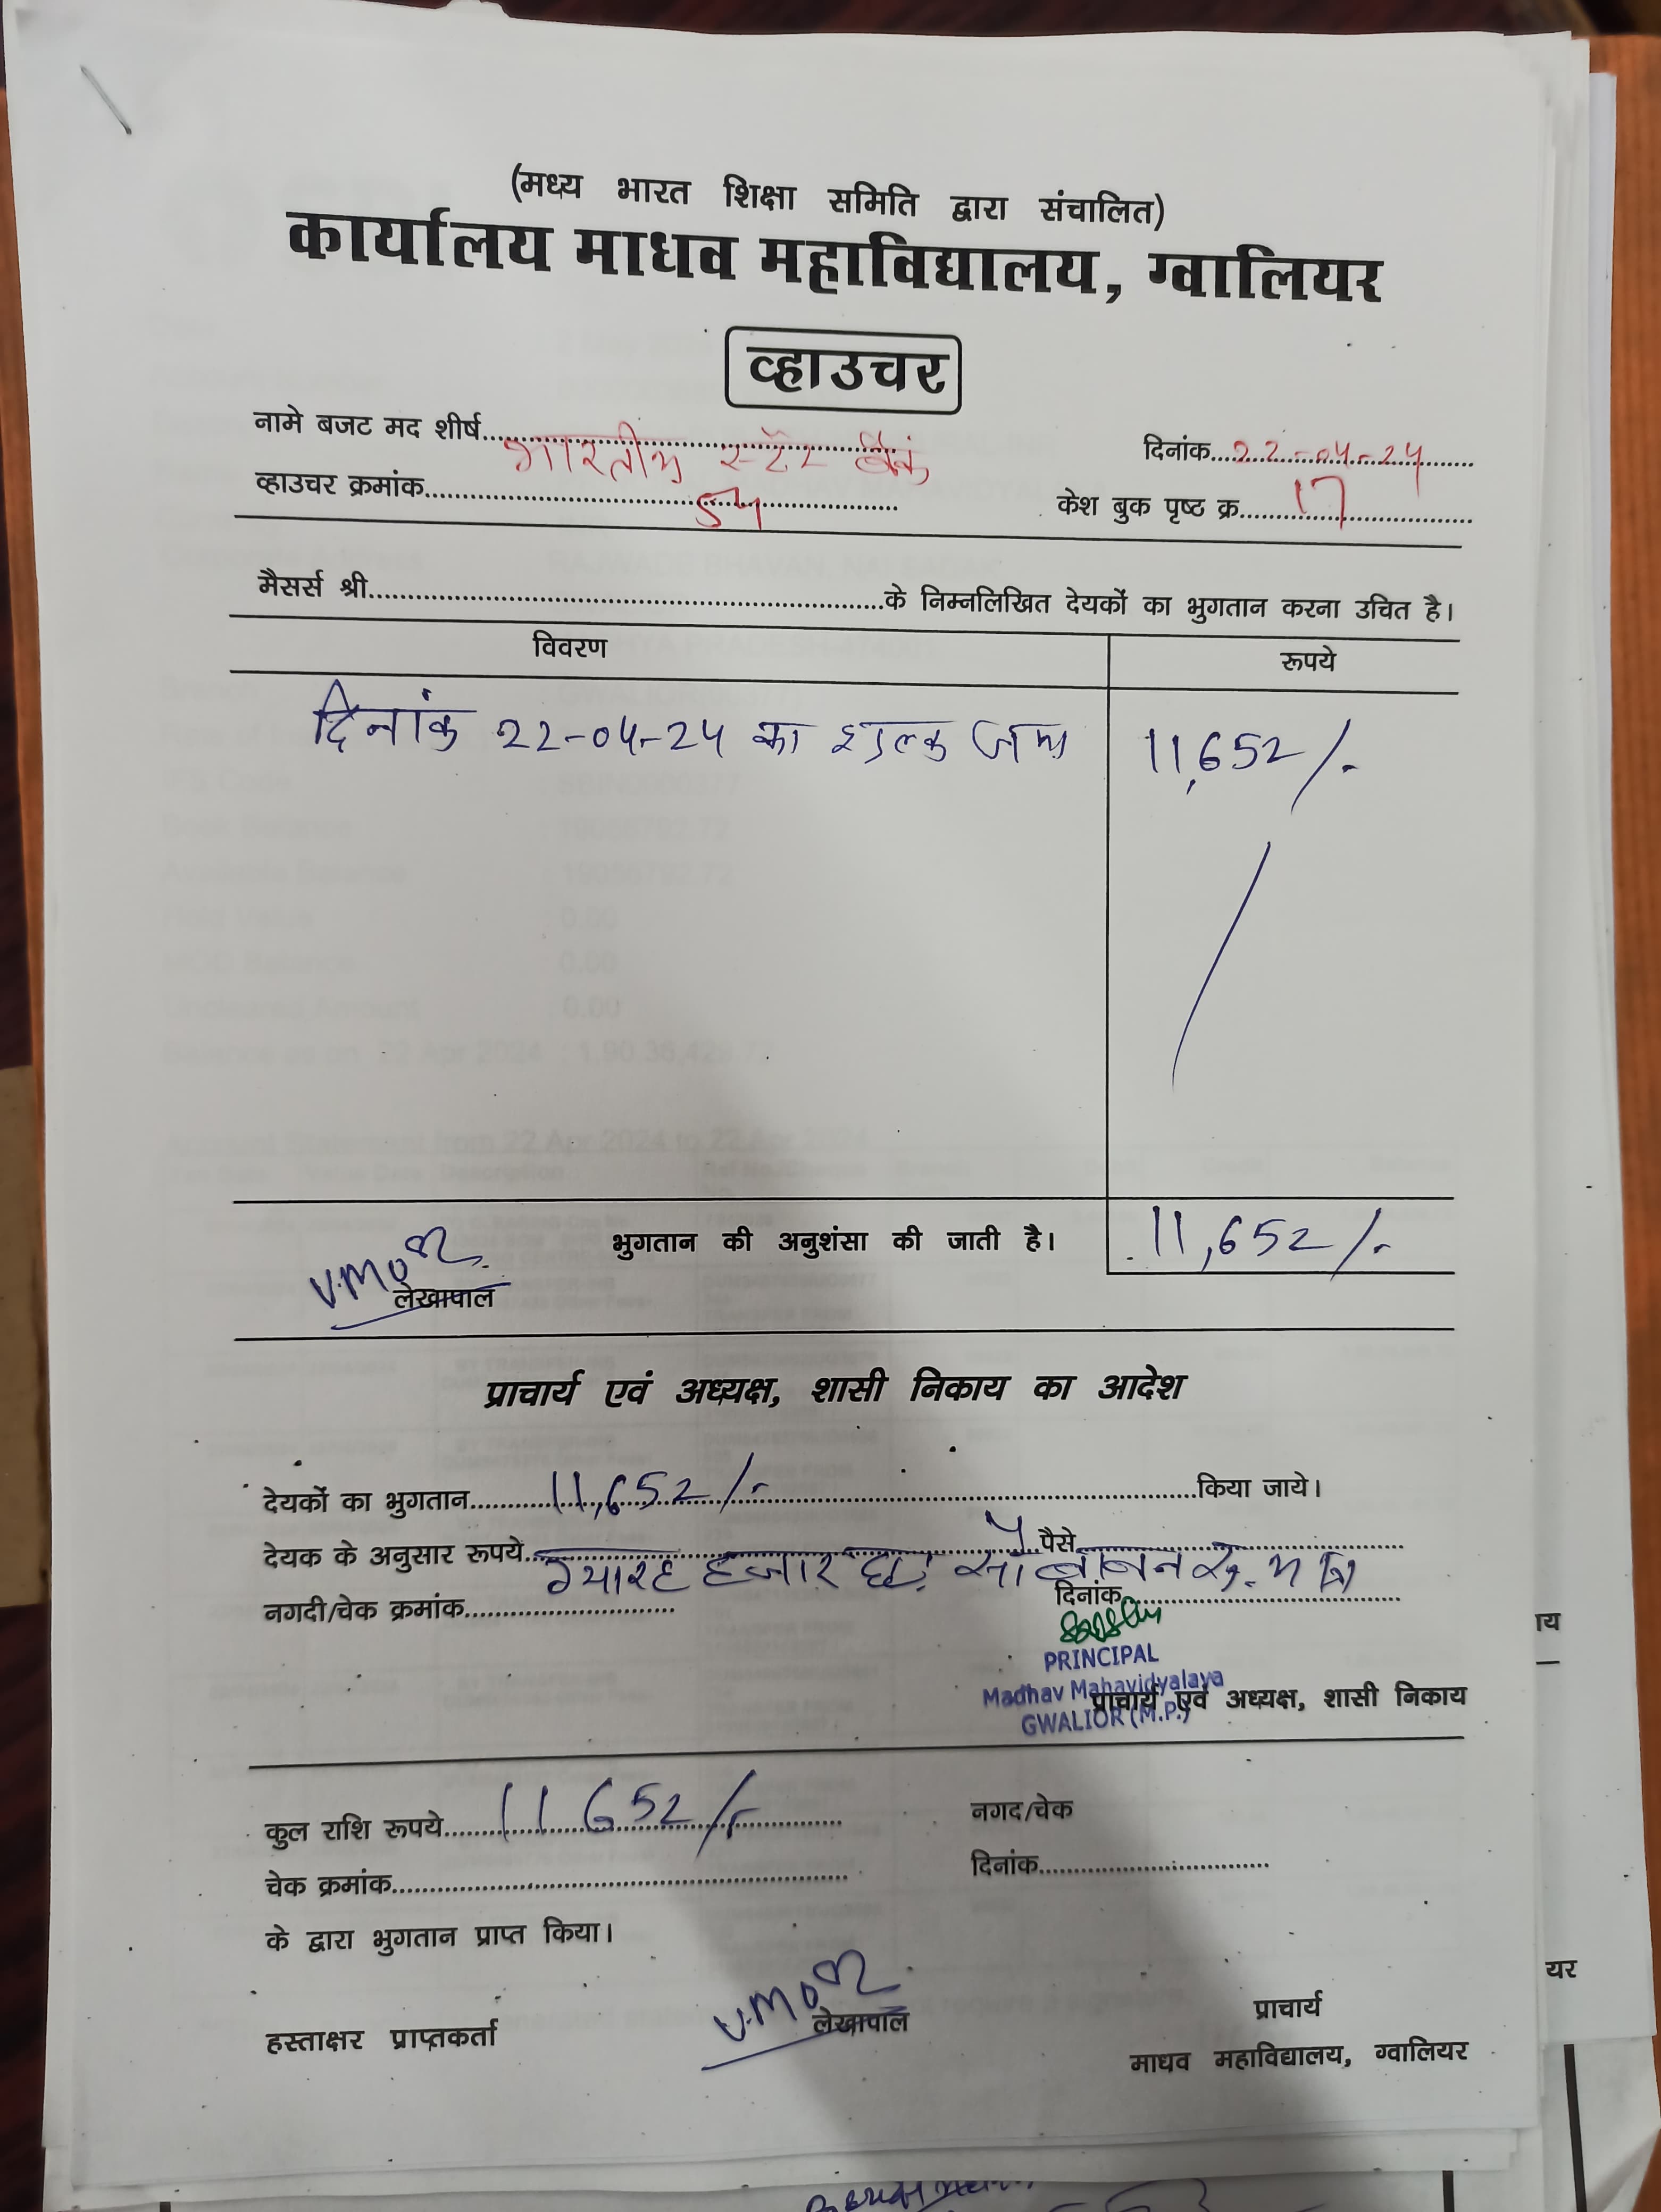 (मध्य भारत शिक्षा समिति द्वारा संचालित)
कार्यालय माधव महाविद्यालय, ग्वालियर
व्हाउचर
नामे बजट मद शीर्ष भारतीय स्टेट बैंक दिनांक 22-04-24
व्हाउचर क्रमांक 54 केश बुक पृष्ठ क्र. 17
मैसर्स श्री के निम्नलिखित देयकों का भुगतान करना उचित है।
विवरण रूपये
दिनांक 22-04-24 का शुल्क जमा 11,652/-
भुगतान की अनुशंसा की जाती है। 11,652/-
लेखापाल
प्राचार्य एवं अध्यक्ष, शासी निकाय का आदेश
देयकों का भुगतान 11,652/- किया जाये।
देयक के अनुसार रूपये ग्यारह हजार छः सौ बावन रु. मात्र पैसे
नगदी/चेक क्रमांक दिनांक
PRINCIPAL
Madhav Mahavidyalaya
GWALIOR (M.P.)
प्राचार्य एवं अध्यक्ष, शासी निकाय
कुल राशि रूपये 11652/- नगद/चेक
चेक क्रमांक दिनांक
के द्वारा भुगतान प्राप्त किया।
हस्ताक्षर प्राप्तकर्ता लेखापाल प्राचार्य
माधव महाविद्यालय, ग्वालियर